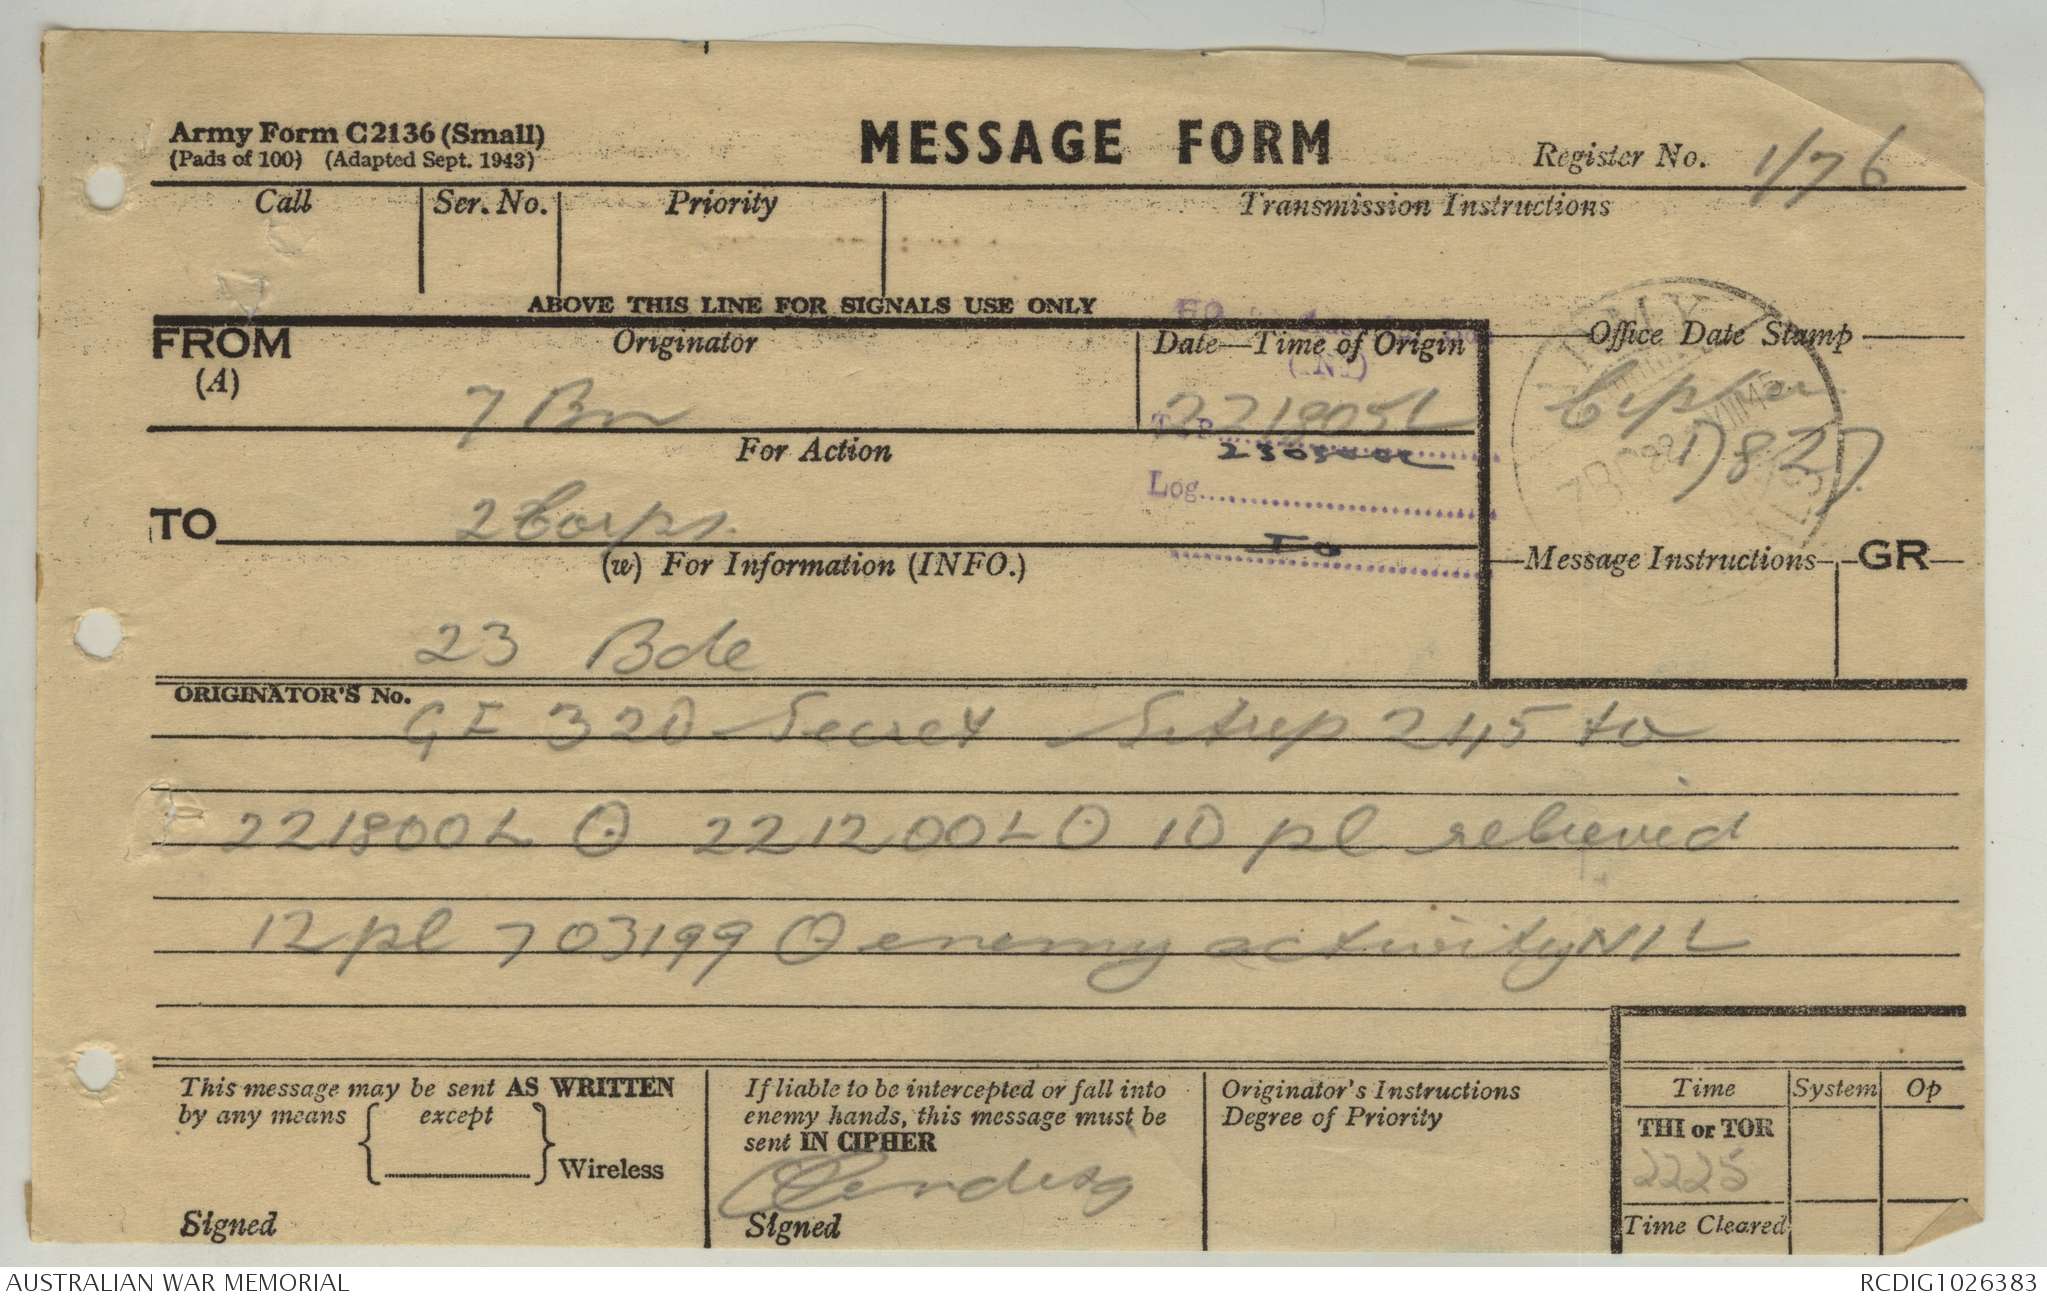 Army Form C2136 (Small)
(Pads of 100) (Adapted Sept. 1943)
MESSAGE FORM
Register No. 1/76
Call
Ser. No.
Priority
Transmission Instructions
ABOVE THIS LINE FOR SIGNALS USE ONLY
FROM
(A)
Originator
7 Bn
Date—Time of Origin
221805L
Office Date Stamp
Cipher
For Action
TO
2 Corps.
Log
(w) For Information (INFO.)
23 Bde
Message Instructions
GR
ORIGINATOR'S No.
GI 320 Secret Sitrep 245 to
221800L O 221200L O 10 pl relieved
12 pl 703199 O enemy activity NIL
This message may be sent AS WRITTEN
by any means { except } Wireless
Signed
If liable to be intercepted or fall into
enemy hands, this message must be
sent IN CIPHER
Signed
Originator's Instructions
Degree of Priority
Time
System
Op
THI or TOR
2225
Time Cleared
AUSTRALIAN WAR MEMORIAL
RCDIG1026383